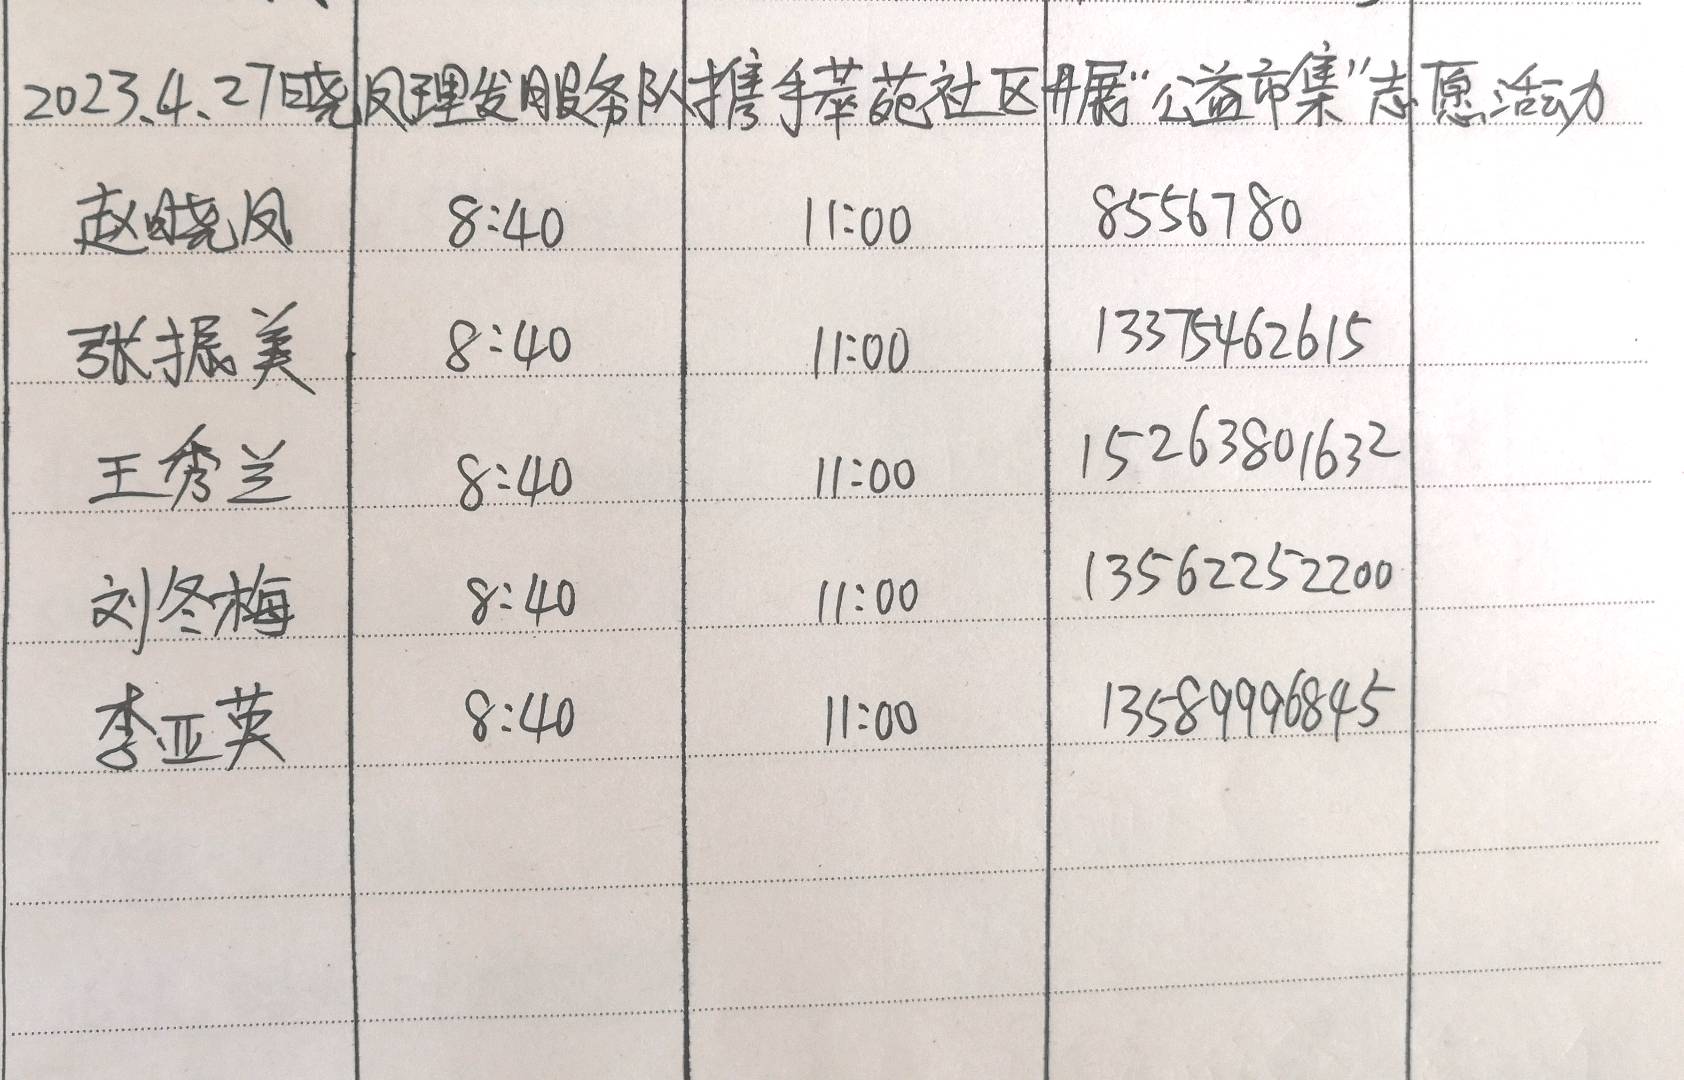 2023.4.27日晓凤理发服务队携手莘苑社区开展“公益市集”志愿活动
赵晓凤 8:40 11:00 8556780
张振美 8:40 11:00 13375462615
王秀兰 8:40 11:00 15263801632
刘冬梅 8:40 11:00 13562252200
李亚英 8:40 11:00 13589996845